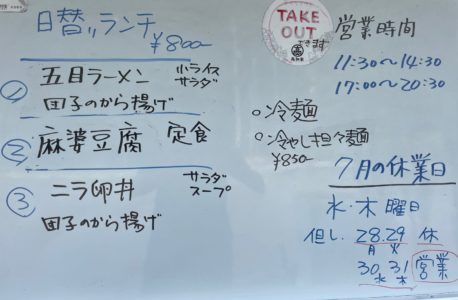 日替りランチ
¥800-
① 五目ラーメン 小ライス サラダ
団子のから揚げ
② 麻婆豆腐 定食
③ ニラ卵丼 サラダ スープ
団子のから揚げ
TAKE
OUT
できます
営業時間
11:30〜14:30
17:00〜20:30
○冷麺
○冷やし担々麺
¥850-
7月の休業日
水・木曜日
但し. 28.29 休
月 火
30.31 営業
水 木